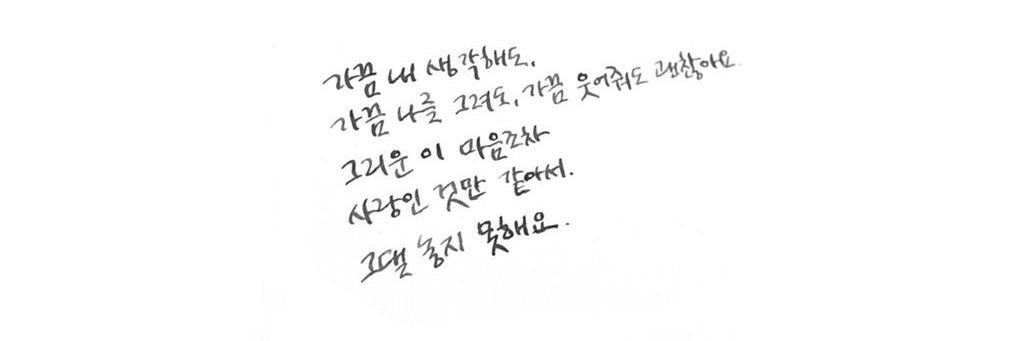 가끔 내 생각해도,
가끔 나를 그려도, 가끔 웃어줘도 괜찮아요.
그리운 이 마음조차
사랑인 것만 같아서.
그댈 놓지 못해요.